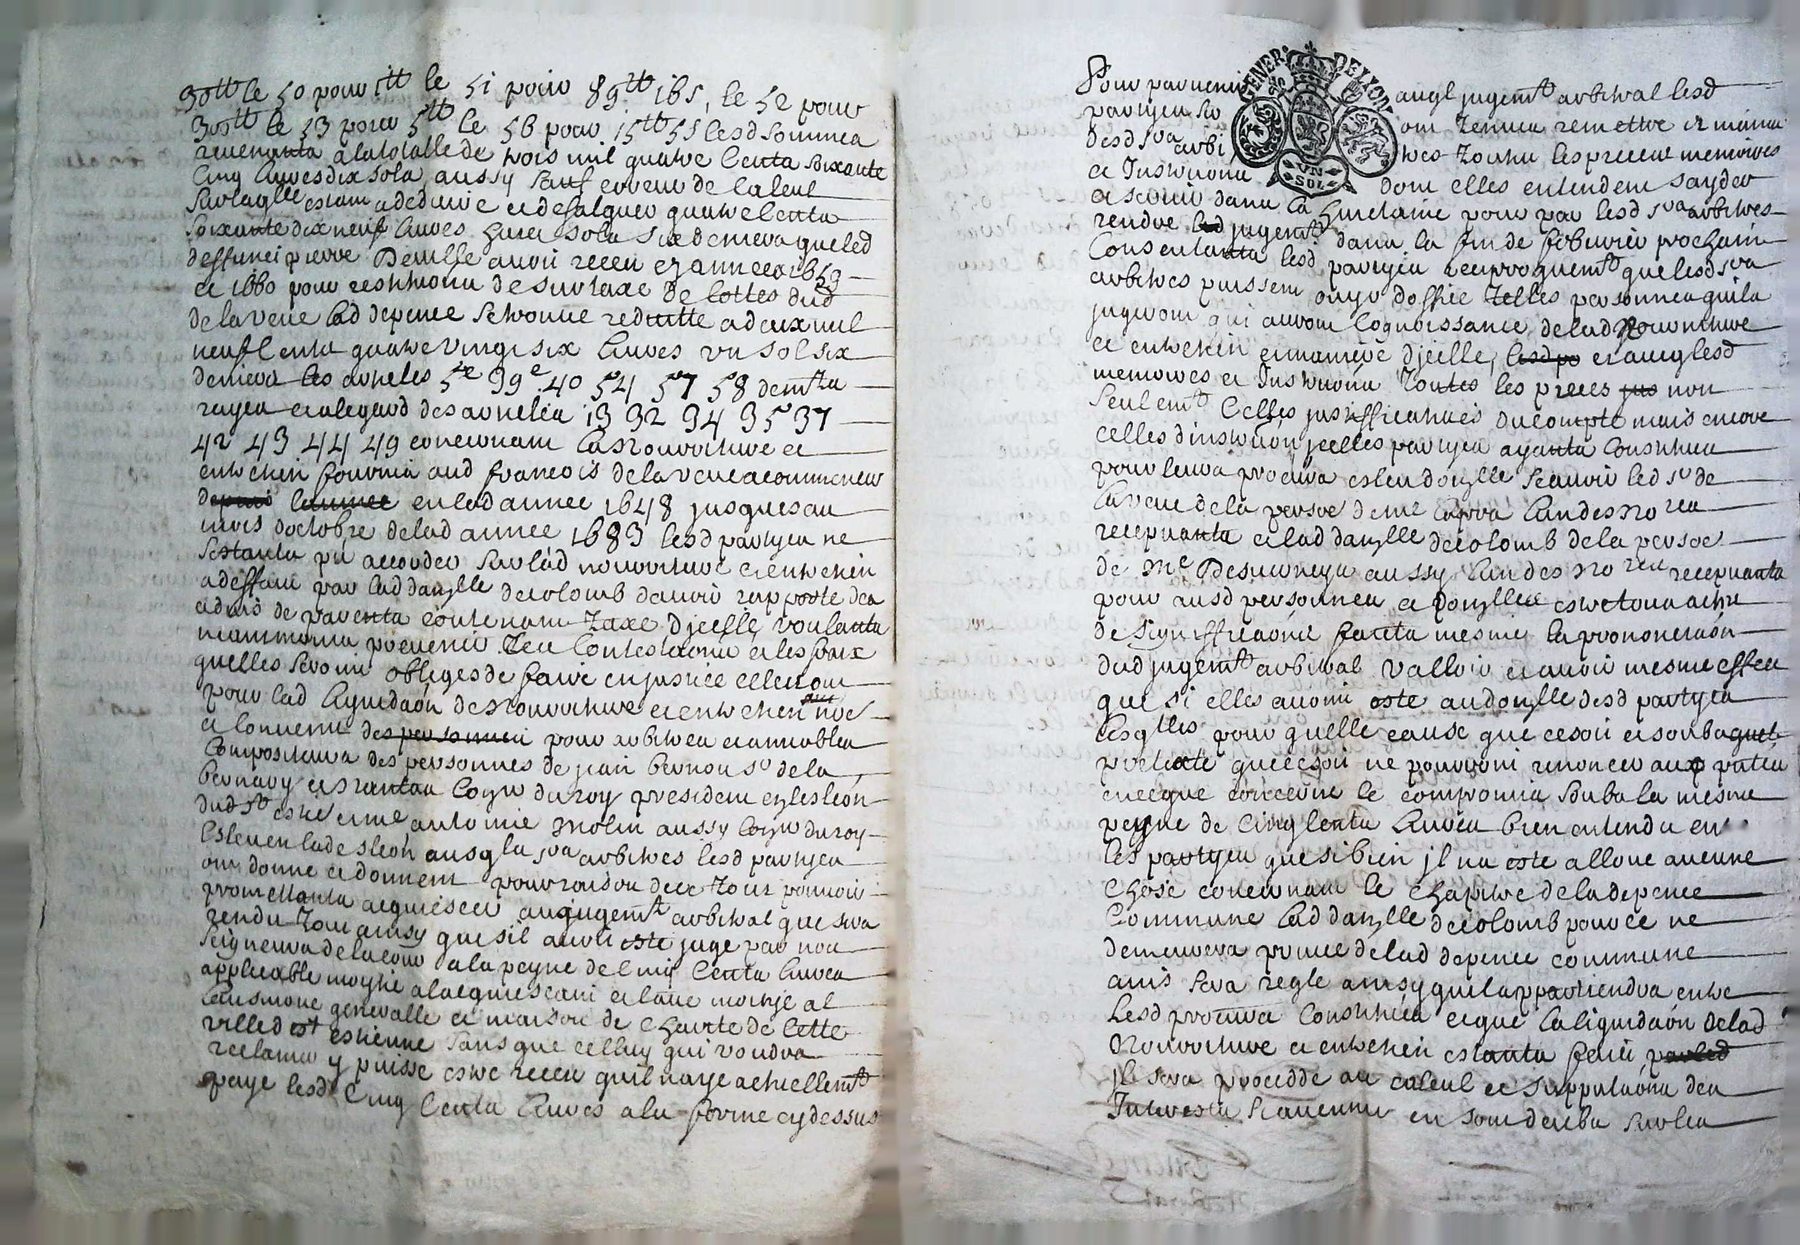 30tt le 50 pour 1tt le 51 pour 89tt 16s, le 52 pour
30tt le 53 pour 5tt le 56 pour 15tt 5s lesd sommes
revenants a la totalle de trois mil quatre Cents soixante
Cinq livres dix sols aussy sauf erreur de Calcul
sur laqlle estant a deduire et desalquer quatre Cents
soixante dix neuf livres huit sols six deniers que led
deffunct pierre avoit receu annees 1659
et 1660 pour restitution de surtaxe de Cottes dud
de la vene lad depence se trouve reduitte a deux mil
neuf Cents quatre vingt six livres un sol six
deniers les articles 5e 39e 40 54 57 58 demts
rayes et a legard des articles 13 32 34 35 37
42 43 44 49 concernant la Nourriture et
entretien fournis aud francois de la vene a commencer
depuis lannee en lad annee 1648 jusques au
mois doctobre de lad annee 1683 lesd partyes ne
sestants pu accorder sur lad nourriture et entretien
a deffaut par lad danlle decolomb davoir rapporte des
advis de parents contenant Taxe djcelle voulants
neanmoins prevenir les Contestations et les fraix
quelles seroint obliges de faire en justice elles ont
pour lad liquidaon de nourriture et entretien
et convenu des personnes pour arbitres et amiables
Compositeurs des personnes de jean bernou sr de la
et Conr du roy president en leslection
dud st estne et me antoine molin aussy Conr du roy
Esleu en lad eslection ausqls srs arbitres lesd partyes
ont donne et donnent pour raison de ce tout pouvoir
promettants acquiescer au jugemt arbitral que sera
rendu tout ainsy que sil avoit este juge par nos
seigneurs de la cour a la peyne de Cinq Cents livres
applicable moytie a lacquiescant et lautre moitye a
laumone generalle et maison de charite de Cette
ville de st estienne sans que celluy qui voudra
reclamer y puisse estre receu quil naye actuellemt
paye lesd Cinq Cents livres a la forme cy dessus
GENER DE LYON
UN SOL
Pour parvenir auql jugemt arbitral lesd
partyes ont Tenues remettre et
desd srs arbitres Toutes les pieces memoires
et Instructions dont elles entendent sayder
et scavoir dans la huictaine pour par lesd srs arbitres
rendre led jugemt dans la fin de febvrier prochain
Consentants lesd partyes reciproquemt que lesd srs
arbitres puissent ouyr doffice Telles personnes quils
jugeront qui auront Cognoissance de lad Nourriture
et entretien et maniere djcelle, lesd po et auql lesd
memoires et Instructions Toutes les pieces jus non
seulemt Celles justifficatives du compte mais encore
celles dinstruon jcelles partyes ayants Constitue
pour leurs procurs et leu domlle scavoir led sr de
la vene de la persoe de me lun des nores
recepvants et lad danlle decolomb de la persoe
de me Desverneys aussy lun des nores recepvants
pour ausd personnes et domlles estre tous actes
de signifficaons faits mesmes la prononciaon
dud jugemt arbitral valloir et avoir mesme effect
que si elles avoint este au domlle desd partyes
lesqlles pour quelle cause que ce soit et soubs quel
pretexte que ce soit ne pourront renoncer aux
en ce que concerne le compromis soubs la mesme
peyne de Cinq Cents livres bien entendu en
les partyes que si bien jl na este alloue aucune
chose concernant le chapitre de la depence
Commune lad danlle decolomb pour ce ne
demeurera privee de lad depence commune
ains sera regle ainsy quil appartiendra entre
lesd procurs Constitues et que la liquidaon de lad
Nourriture et entretien estants faict par led
jl sera procedde au calcul et supputaons des
Interests scavenus en son debs sur les